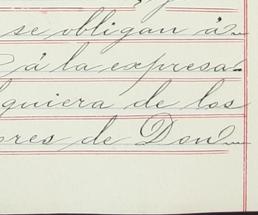 se obligan á
á la expresa-
quiera de los
ores de Don